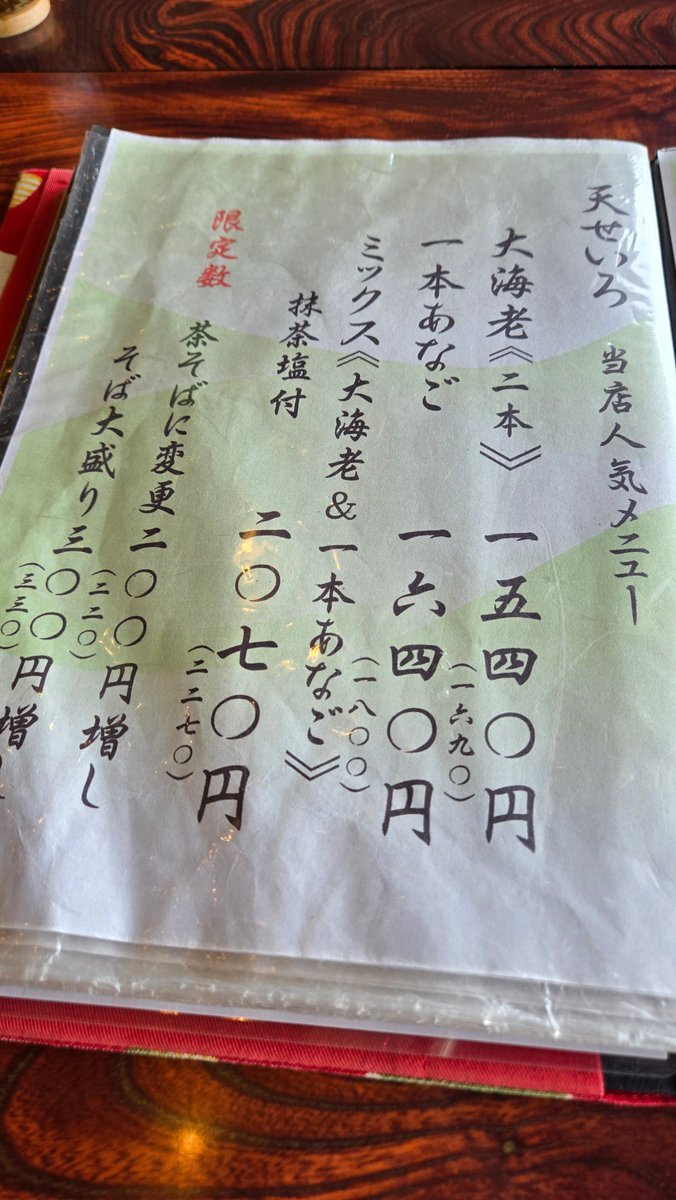 天せいろ 当店人気メニュー
大海老《二本》 一五四〇円
(一六九〇)
一本あなご 一六四〇円
(一八〇〇)
ミックス《大海老&一本あなご》
抹茶塩付 二〇七〇円
(二二七〇)
限定数
茶そばに変更 二〇〇円増し
(二二〇)
そば大盛り 三〇〇円増し
(三三〇)